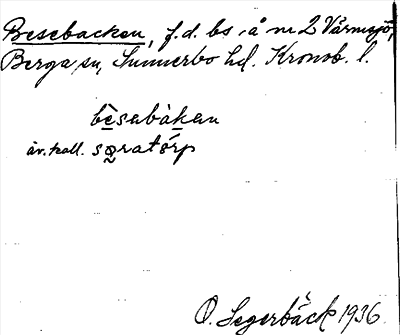 Besebacken, f.d. bs å nr 2 Vårmsjö,
Berga sn, Sunnerbo hd. Kronob. l.
bèsabàkan
äv. kall. sǫratórp
O. Segerbäck 1936